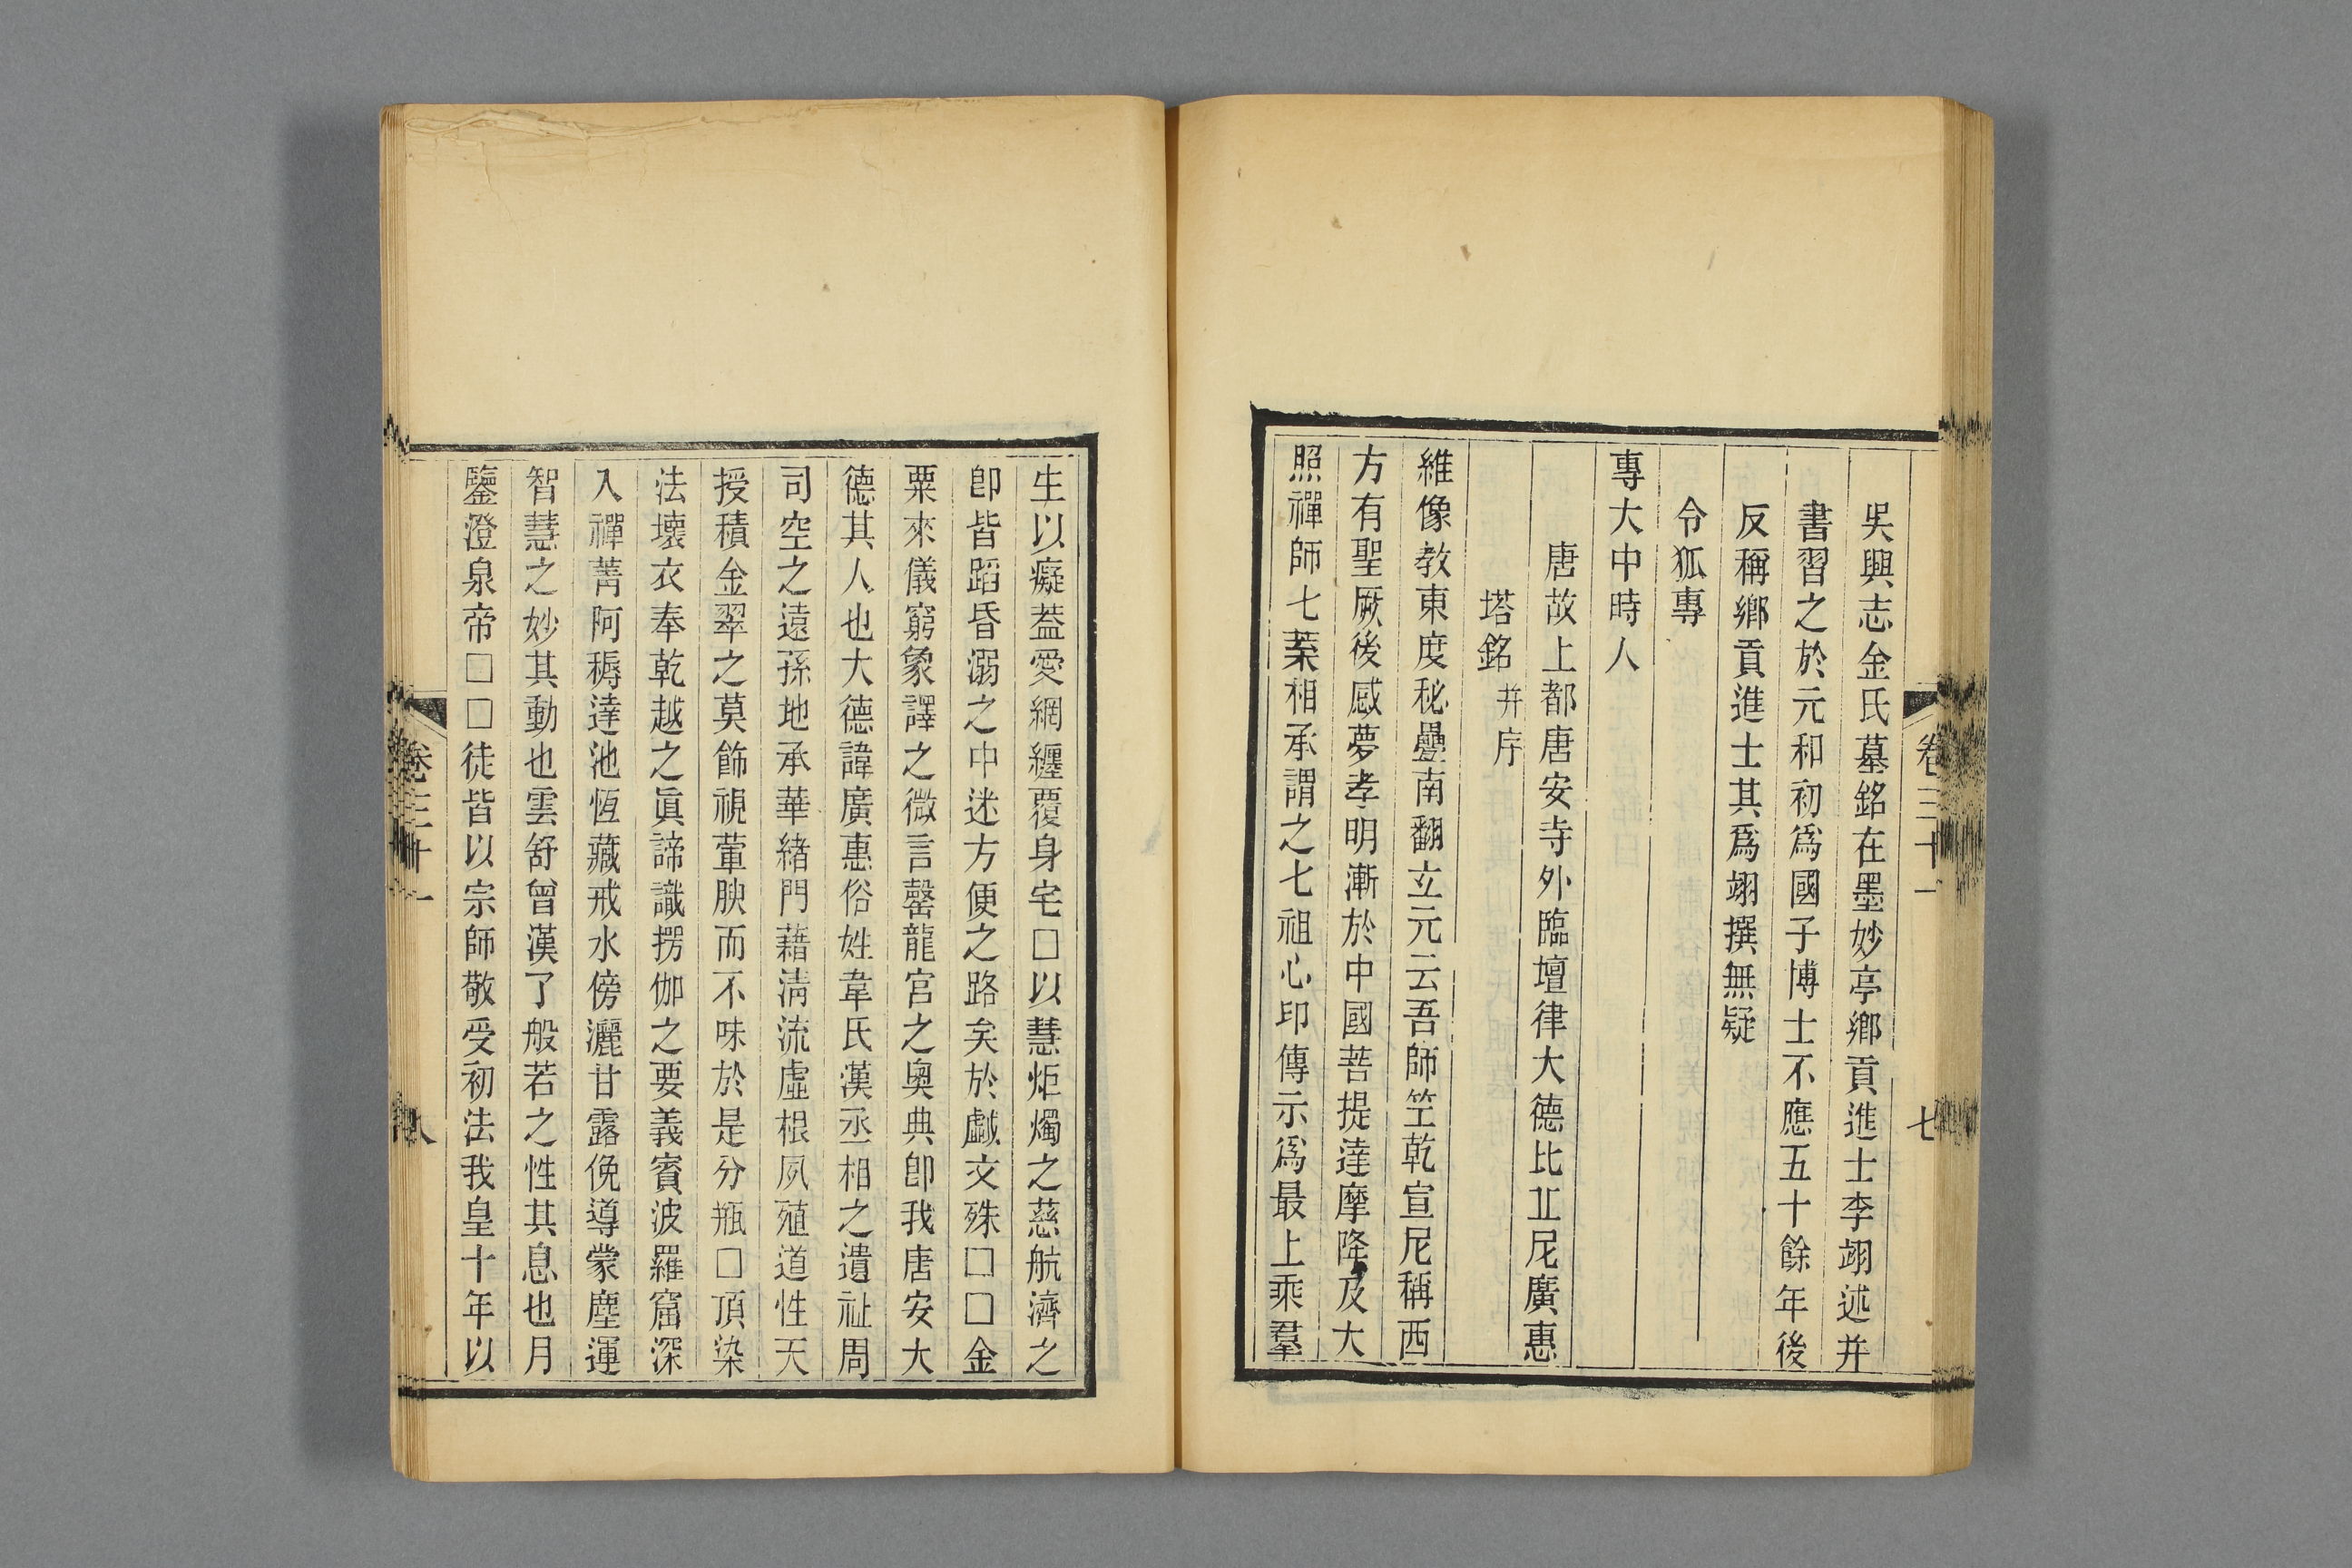 卷三十一
七
吳興志金氏墓銘在墨妙亭鄉貢進士李翊述并
書習之於元和初爲國子博士不應五十餘年後
反稱鄉貢進士其爲翊撰無疑
令狐專
專大中時人
唐故上都唐安寺外臨壇律大德比丘尼廣惠
塔銘并序
維像教東度秘疊南翻立元云吾師竺乾宣尼稱西
方有聖厥後感夢孝明漸於中國菩提達摩降及大
照禪師七葉相承謂之七祖心印傳示爲最上乘羣
生以癡葢愛網纏覆身宅□以慧炬燭之慈航濟之
卽皆蹈昏溺之中迷方便之路矣於戲文殊□□金
粟來儀窮象譯之微言罄龍宮之奧典卽我唐安大
德其人也大德諱廣惠俗姓韋氏漢丞相之遺祉周
司空之遠孫地承華緒門藉淸流虛根夙殖道性天
授積金翠之莫飾視葷腴而不味於是分瓶□頂染
法壞衣奉乾越之眞諦識楞伽之要義賓波羅窟深
入禪菁阿耨達池恆藏戒水傍灑甘露俛導蒙塵運
智慧之妙其動也雲舒曾漢了般若之性其息也月
鑒澄泉帝□□徒皆以宗師敬受初法我皇十年以
卷三十一
八